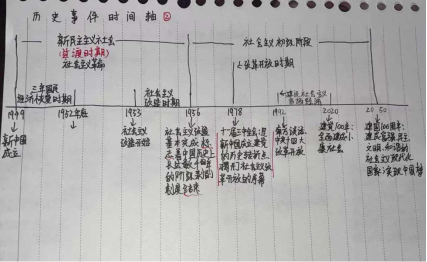 历史事件时间轴②
新民主主义社会
(过渡时期)
社会主义革命
社会主义初级阶段
改革开放时期
三年国民
经济恢复时期
社会主义
改造时期
建设社会主义
市场经济
1949
1952年底
1953
1956
1978
1992
2020
2050
新中国
成立
社会主义
改造开始
社会主义改造
基本完成,标
志着中国历史上
长达数千年
的阶级剥削
制度结束
十一届三中全会:是
新中国成立以来
的历史转折点,
揭开了社会主义改
革开放的序幕
南方谈话,
中共十四大
改革开放
建党100年:
全面建成小
康社会
建国100周年:
建成富强民主
文明、和谐的
社会主义现代化
国家,实现中国梦